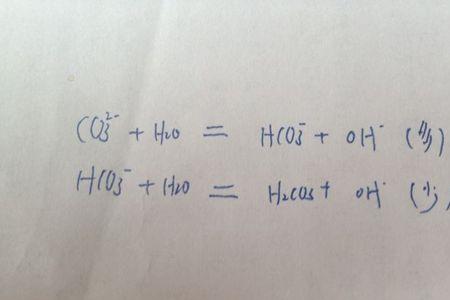 CO₃²⁻ + H₂O = HCO₃⁻ + OH⁻
HCO₃⁻ + H₂O = H₂CO₃ + OH⁻